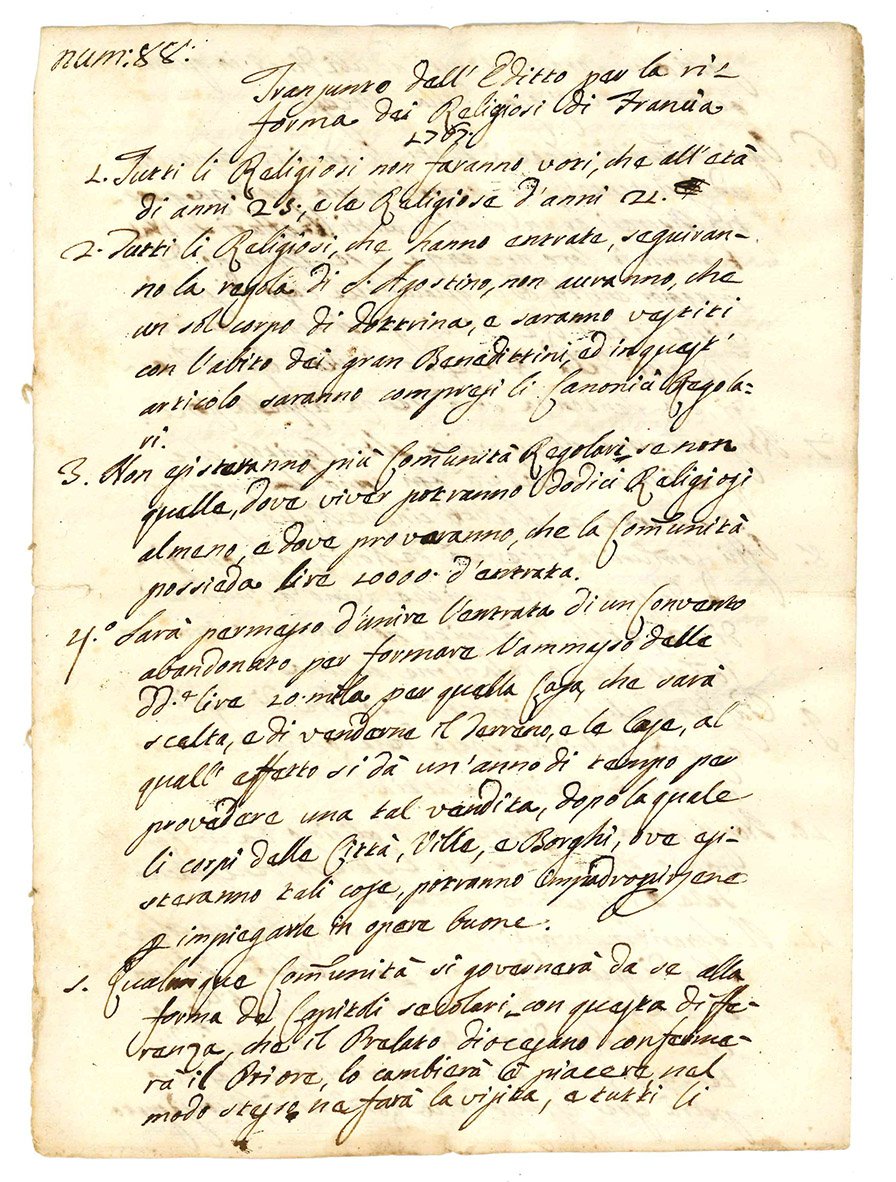 num: 88:
Transunto dell' Editto per la ri-
forma dei Religiosi di Francia
1767.
1. Tutti li Religiosi non faranno voti, che all'età
di anni 25:, e le Religiose d'anni 21.
2. Tutti li Religiosi, che hanno entrate, seguiran-
no la regola di S. Agostino, non auranno, che
un sol corpo di dottrina, e saranno vestiti
con l'abito dei gran Benedittini, ed in quest'
articolo saranno compresi li Canonici Regola-
ri.
3. Non esisteranno più Com̃unità Regolari, se non
quelle, dove viver potranno dodici Religiosi
almeno, e dove proveranno, che la Com̃unità
possieda lire 10000. d'entrata.
4.º Sarà permesso d'unire l'entrata di un Convento
abandonato per formare l'ammasso delle
dd.e lire 10. mila per quella Casa, che sarà
scelta, e di venderne il Terreno, e le Case, al
quall' effetto si dà un'anno di tempo per
provedere una tal vendita, dopo la quale
li corpi delle Città, Ville, e Borghi, ove esi-
steranno tali cose, potranno impadropirsene
p impiegarle in opere buone.
5. Qualunque Com̃unità si governerà da se alla
forma de Capitoli secolari, con questa diffe-
renza, che il Prelato diocesano conferme-
rà il Priore, lo cambierà à piacere, nel
modo stesso ne farà la visita, e tutti li